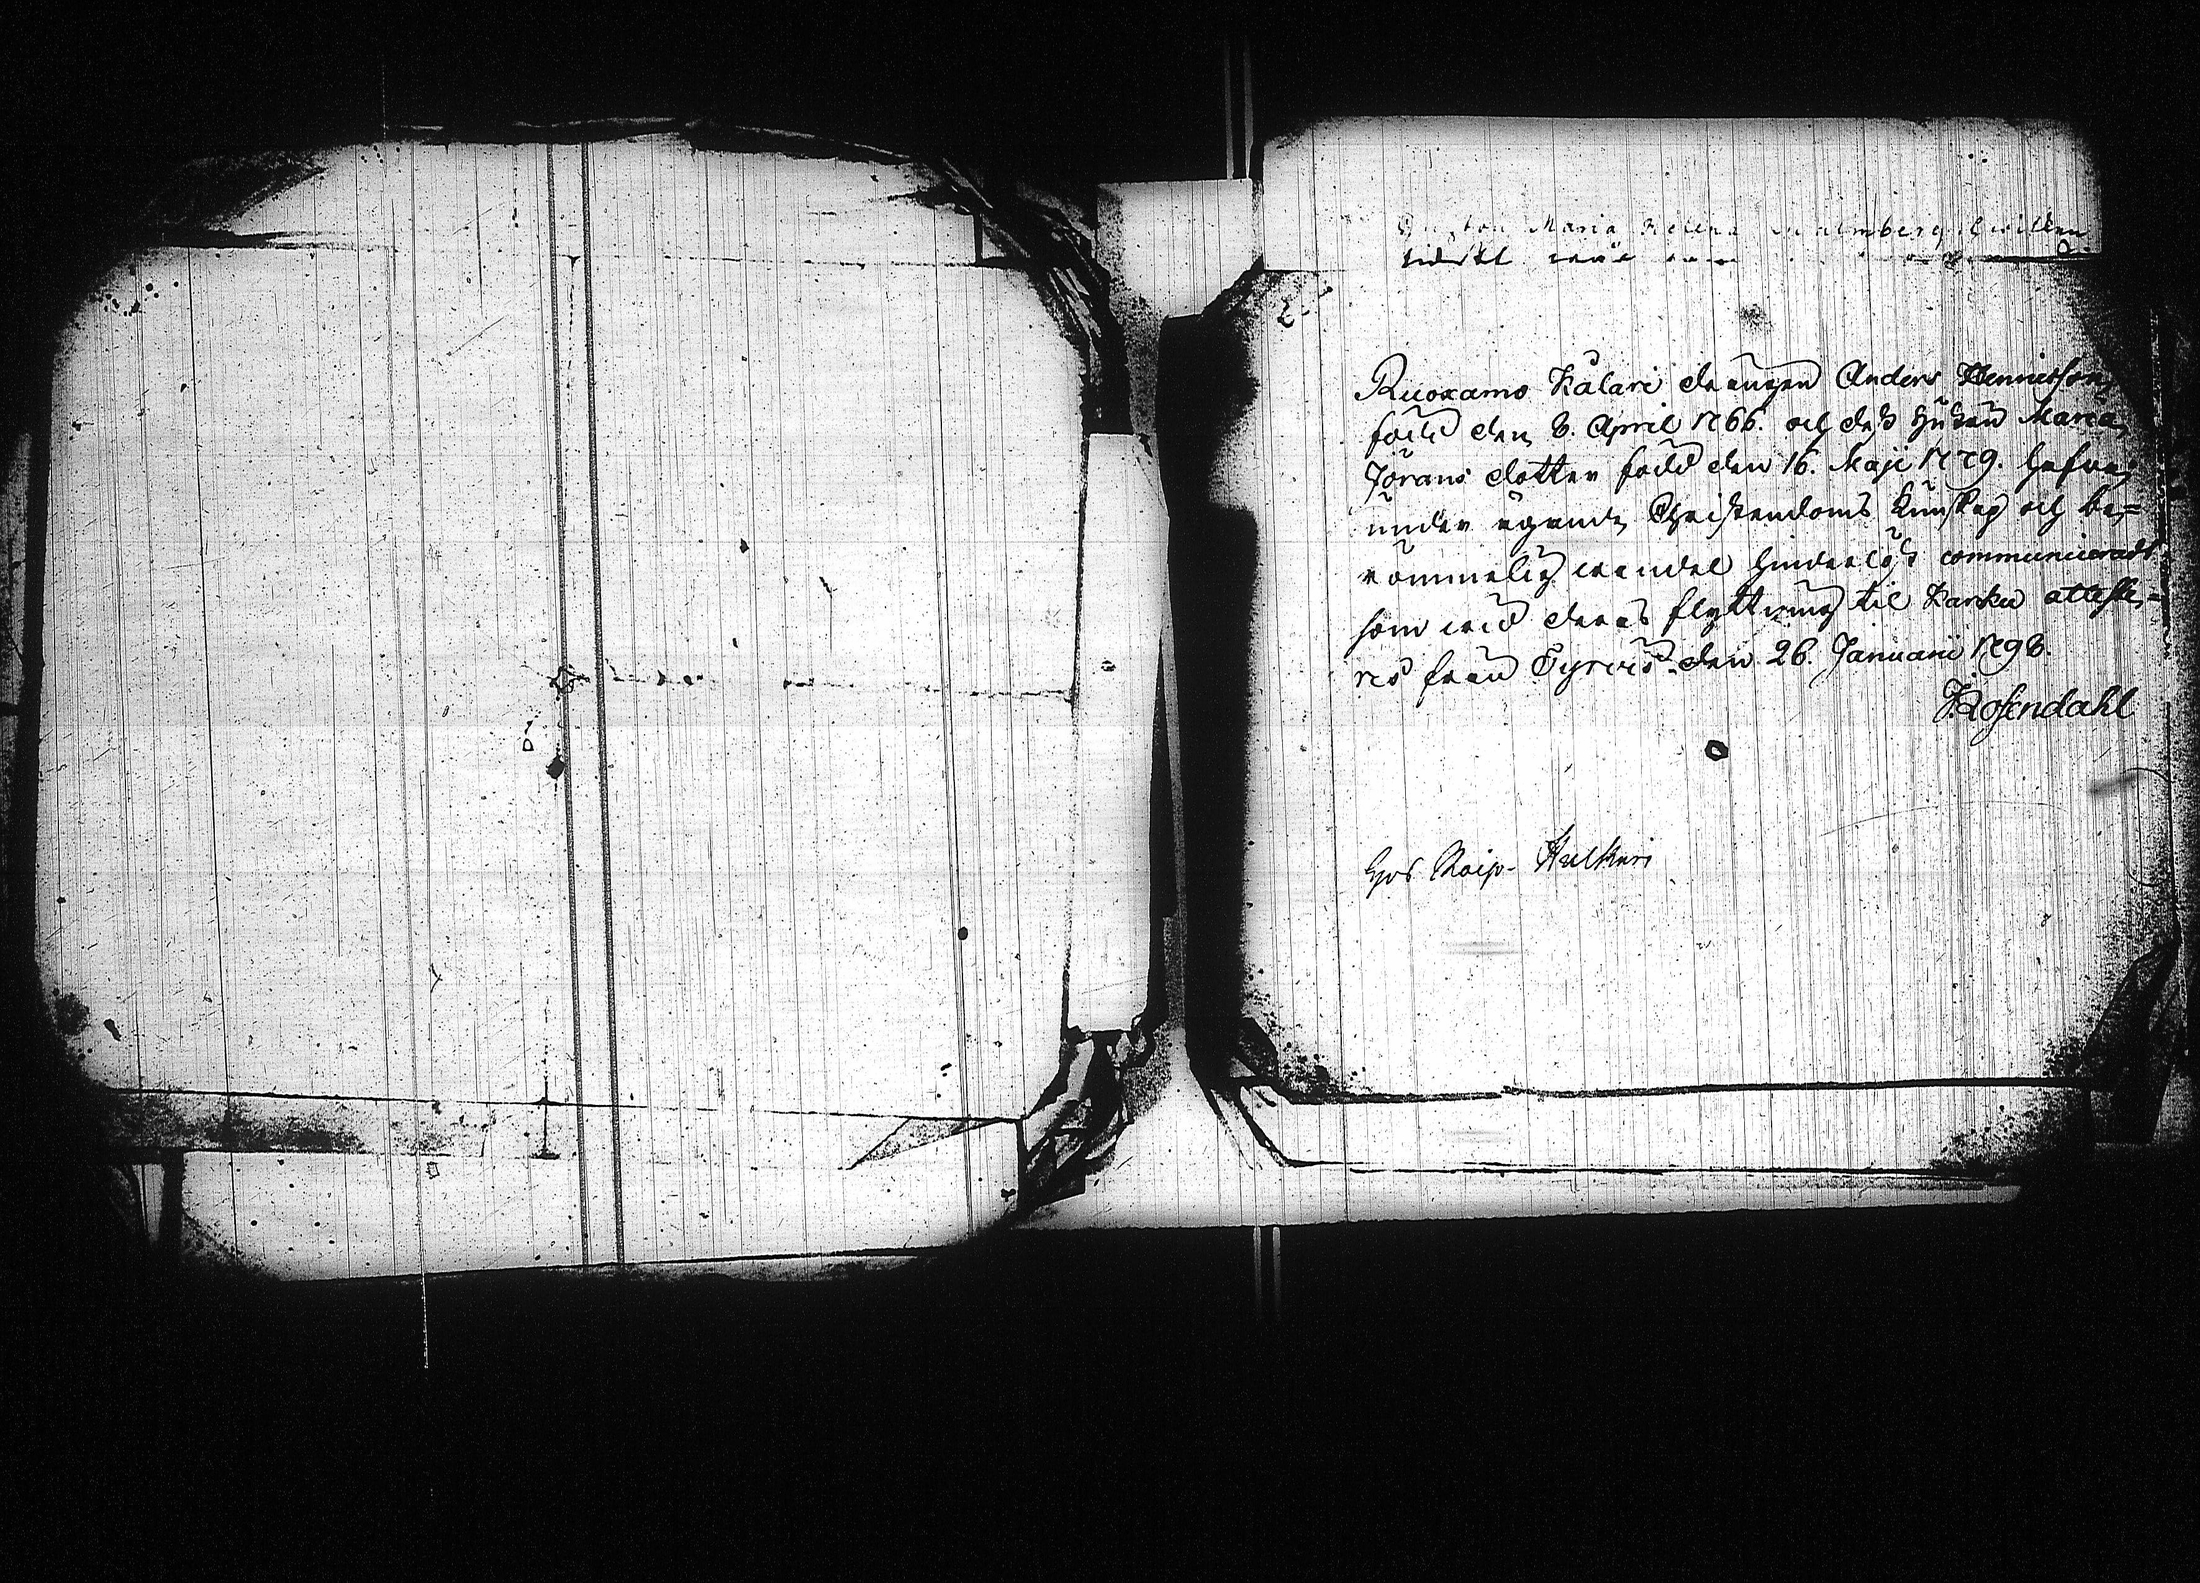 Maria Helena Malmberg hwilken
2
Ruoxamo Kälari drängen Anders Hennicsson
född den 8. April 1766. och dess hustru Maria
Jörans dotter född den 16. Maji 1779. hafva
under ägande Christendoms kunskap och be=
römmelig wandel hinderlöst communicerat
som wid deras flyttning til Karku atteste=
res från Tyrvis den 26. Januarii 1798.
J. Rosendahl
hos Roip- Hulkeri